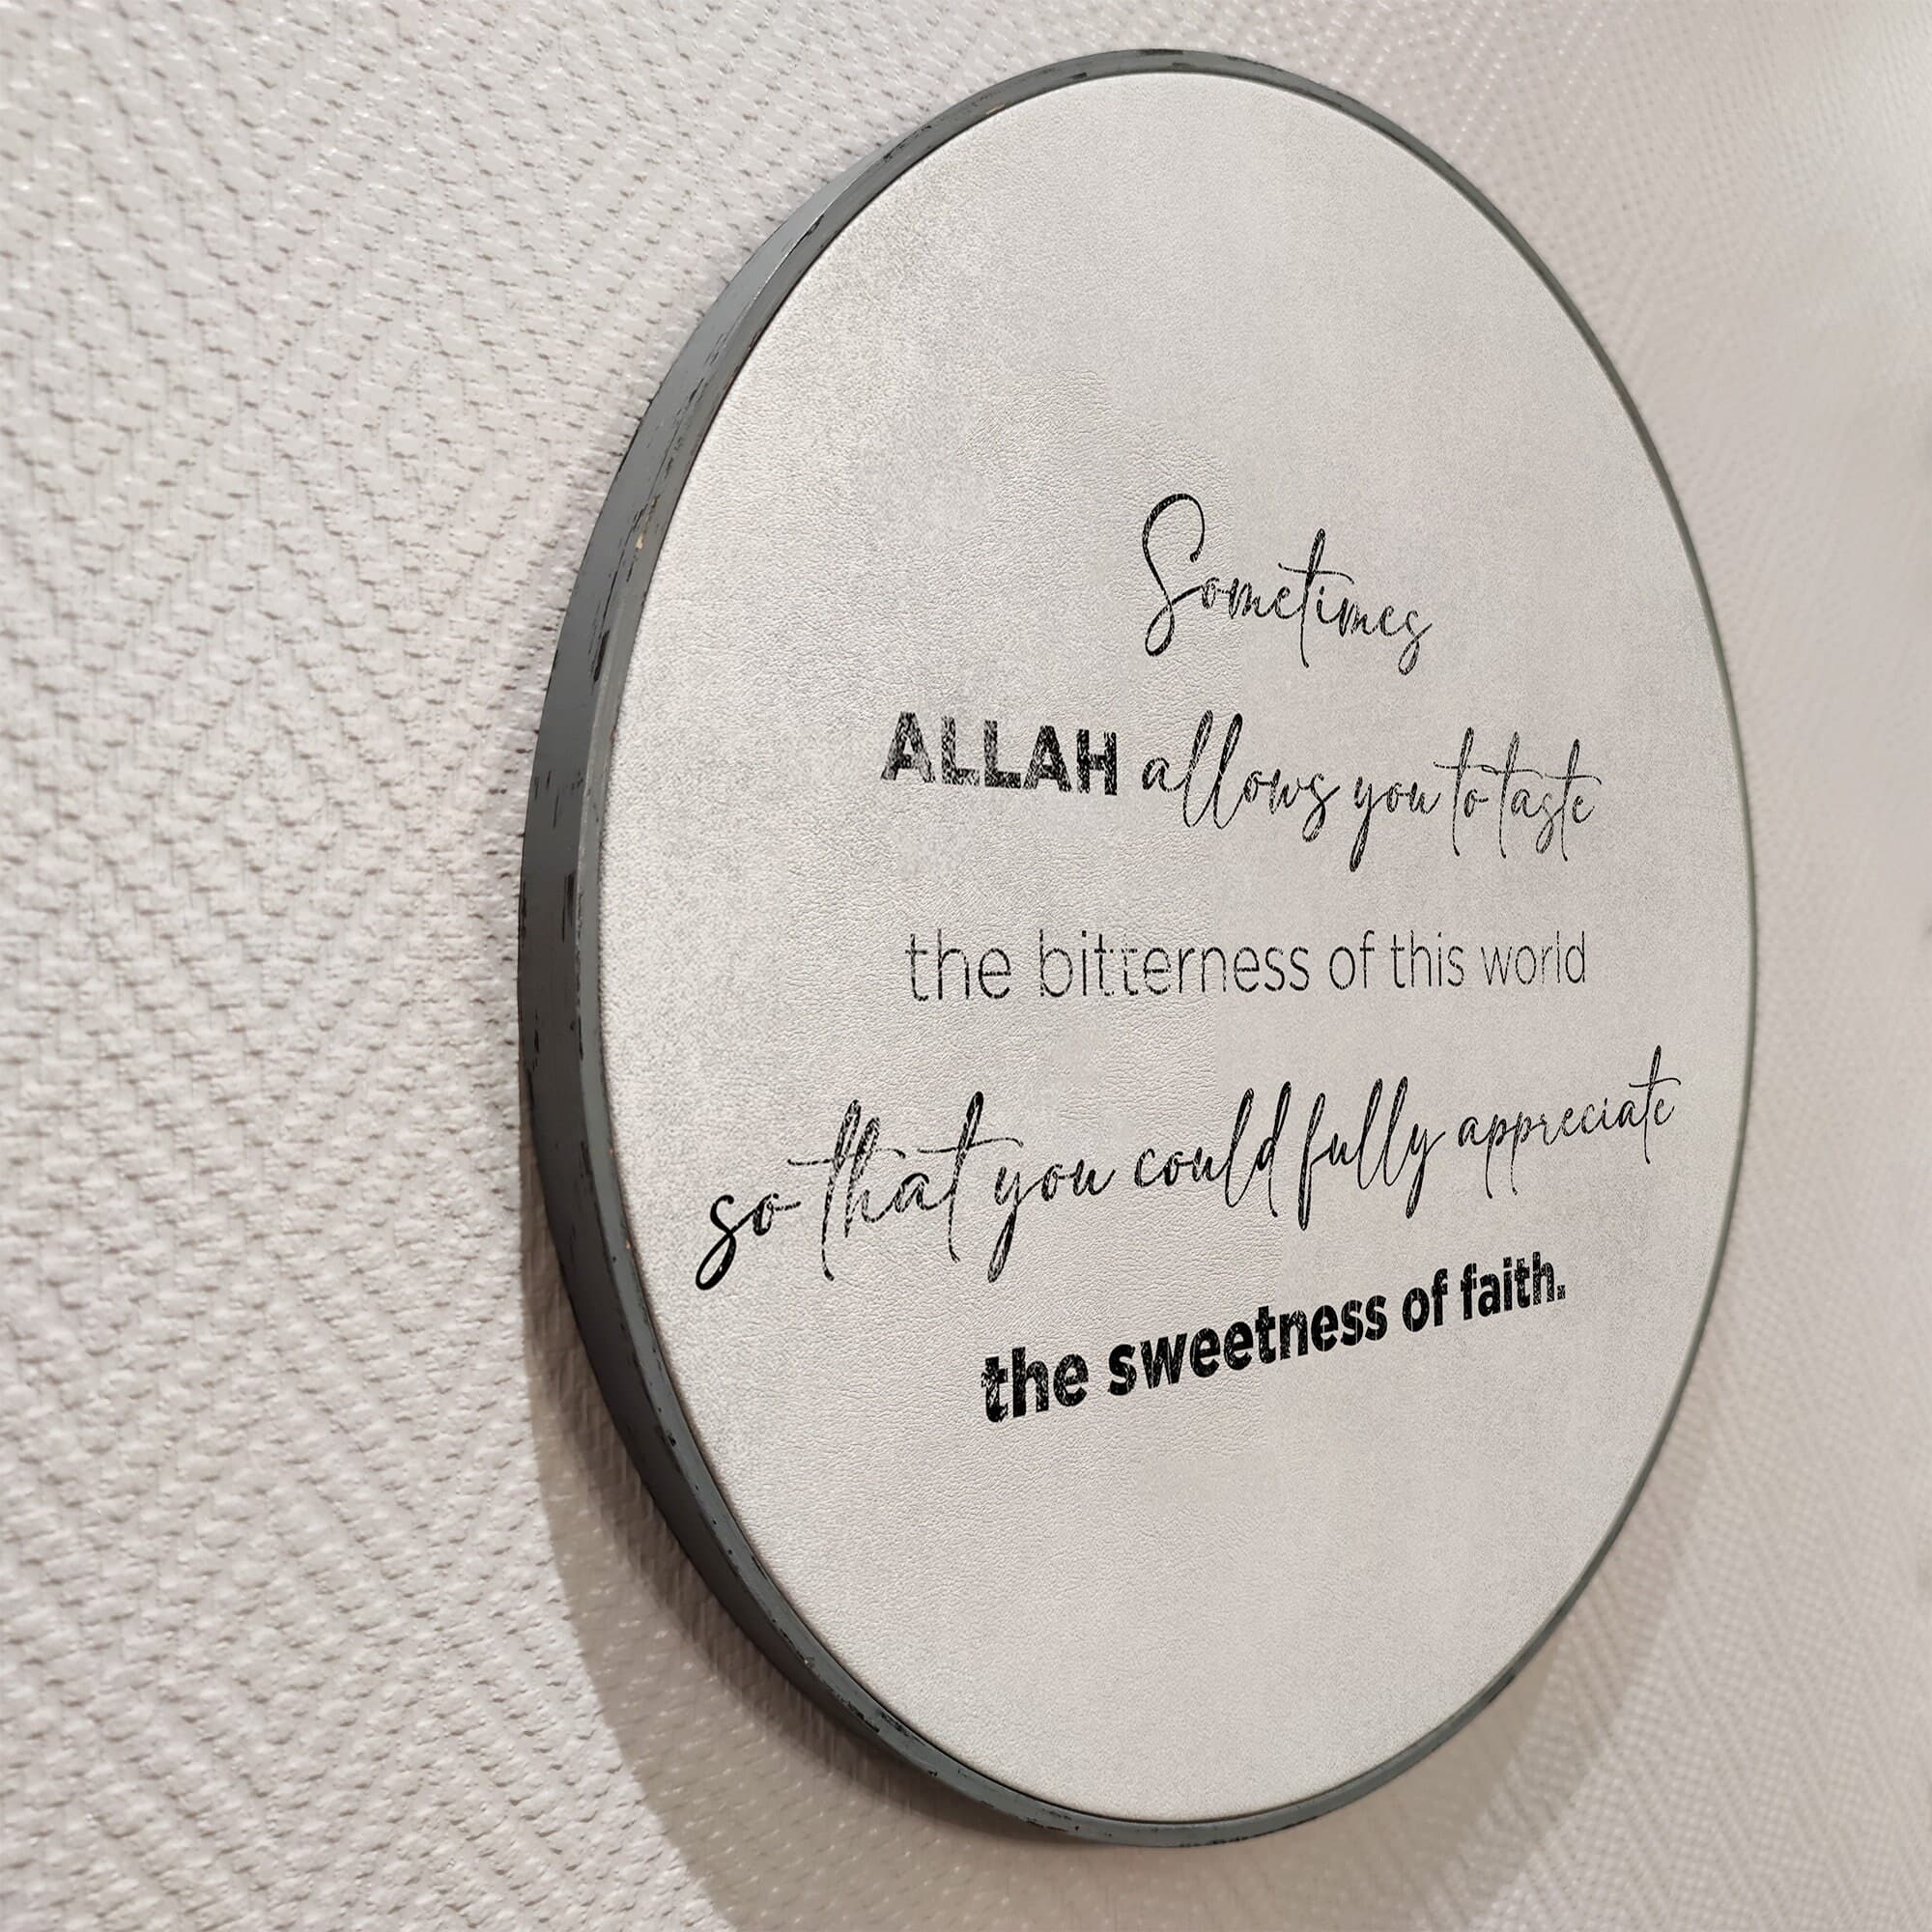 Sometimes
ALLAH allows you to taste
the bitterness of this world
so that you could fully appreciate
the sweetness of faith.